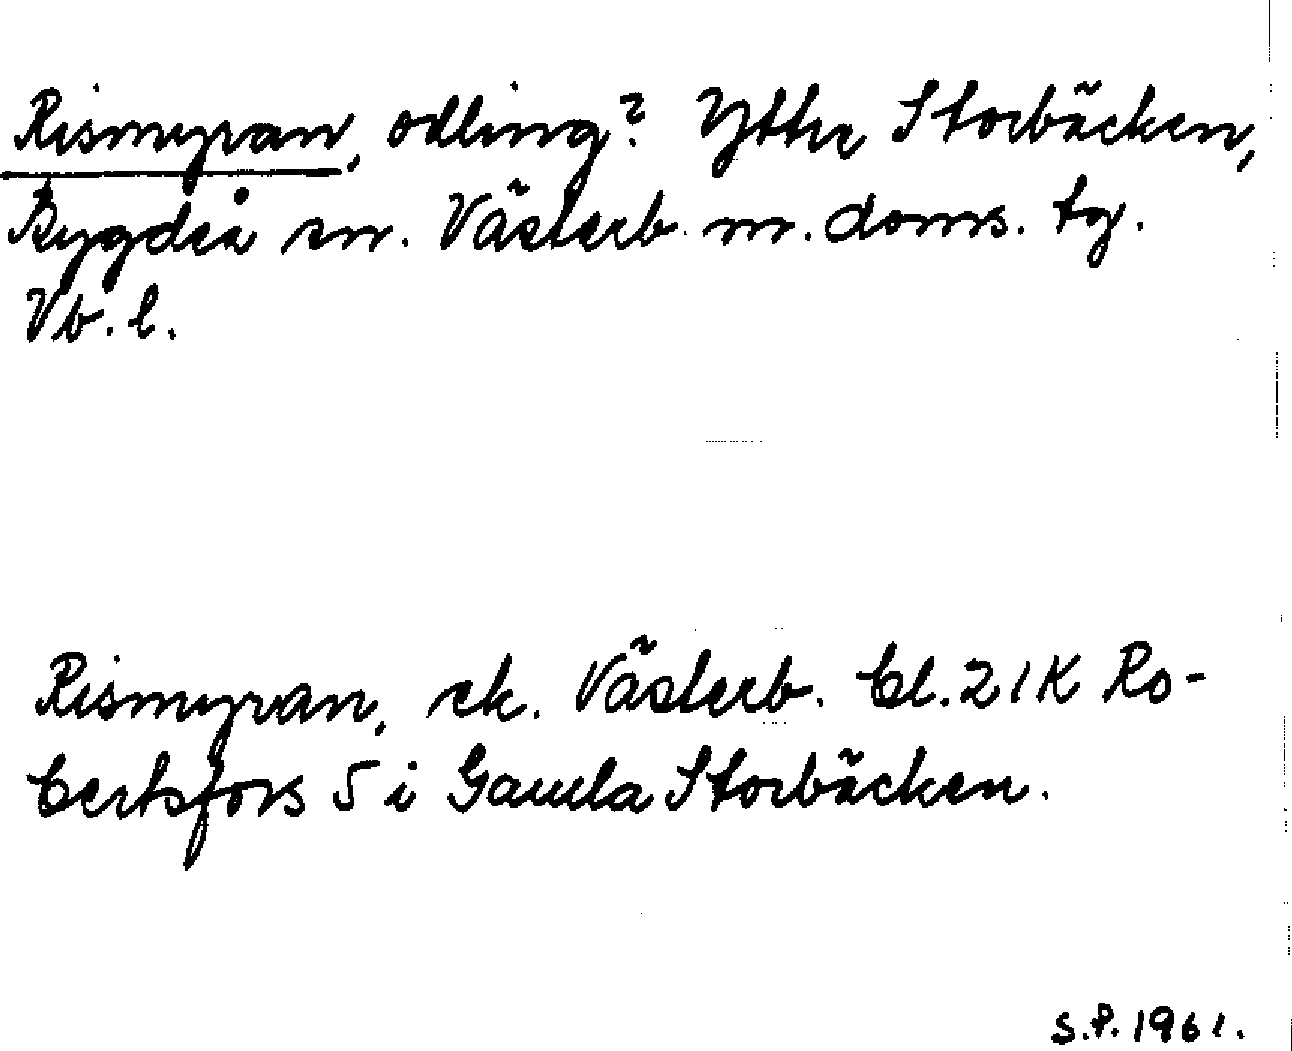 Rismyran, odling? Yttre Storbäcken,
Bygdeå sn. Västerb. m. doms. tg.
Vb. l.
Rismyran, ek. Västerb. bl. 21K Ro-
bertsfors 5 i Gamla Storbäcken.
S.P. 1961.